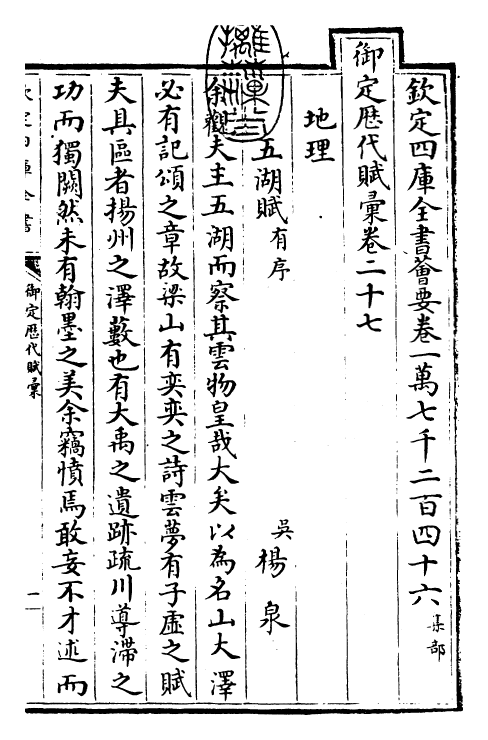 欽定四庫全書薈要卷一萬七千二百四十六 集部
御定歷代賦彙卷二十七
地理
五湖賦 有序
吳 楊泉
余觀夫主五湖而察其雲物皇哉大矣以為名山大澤
必有記頌之章故梁山有奕奕之詩雲夢有子虛之賦
夫具區者揚州之澤藪也有大禹之遺跡疏川導滯之
功而獨闕然未有翰墨之美余竊憤焉敢妄不才述而
御定歷代賦彙
一